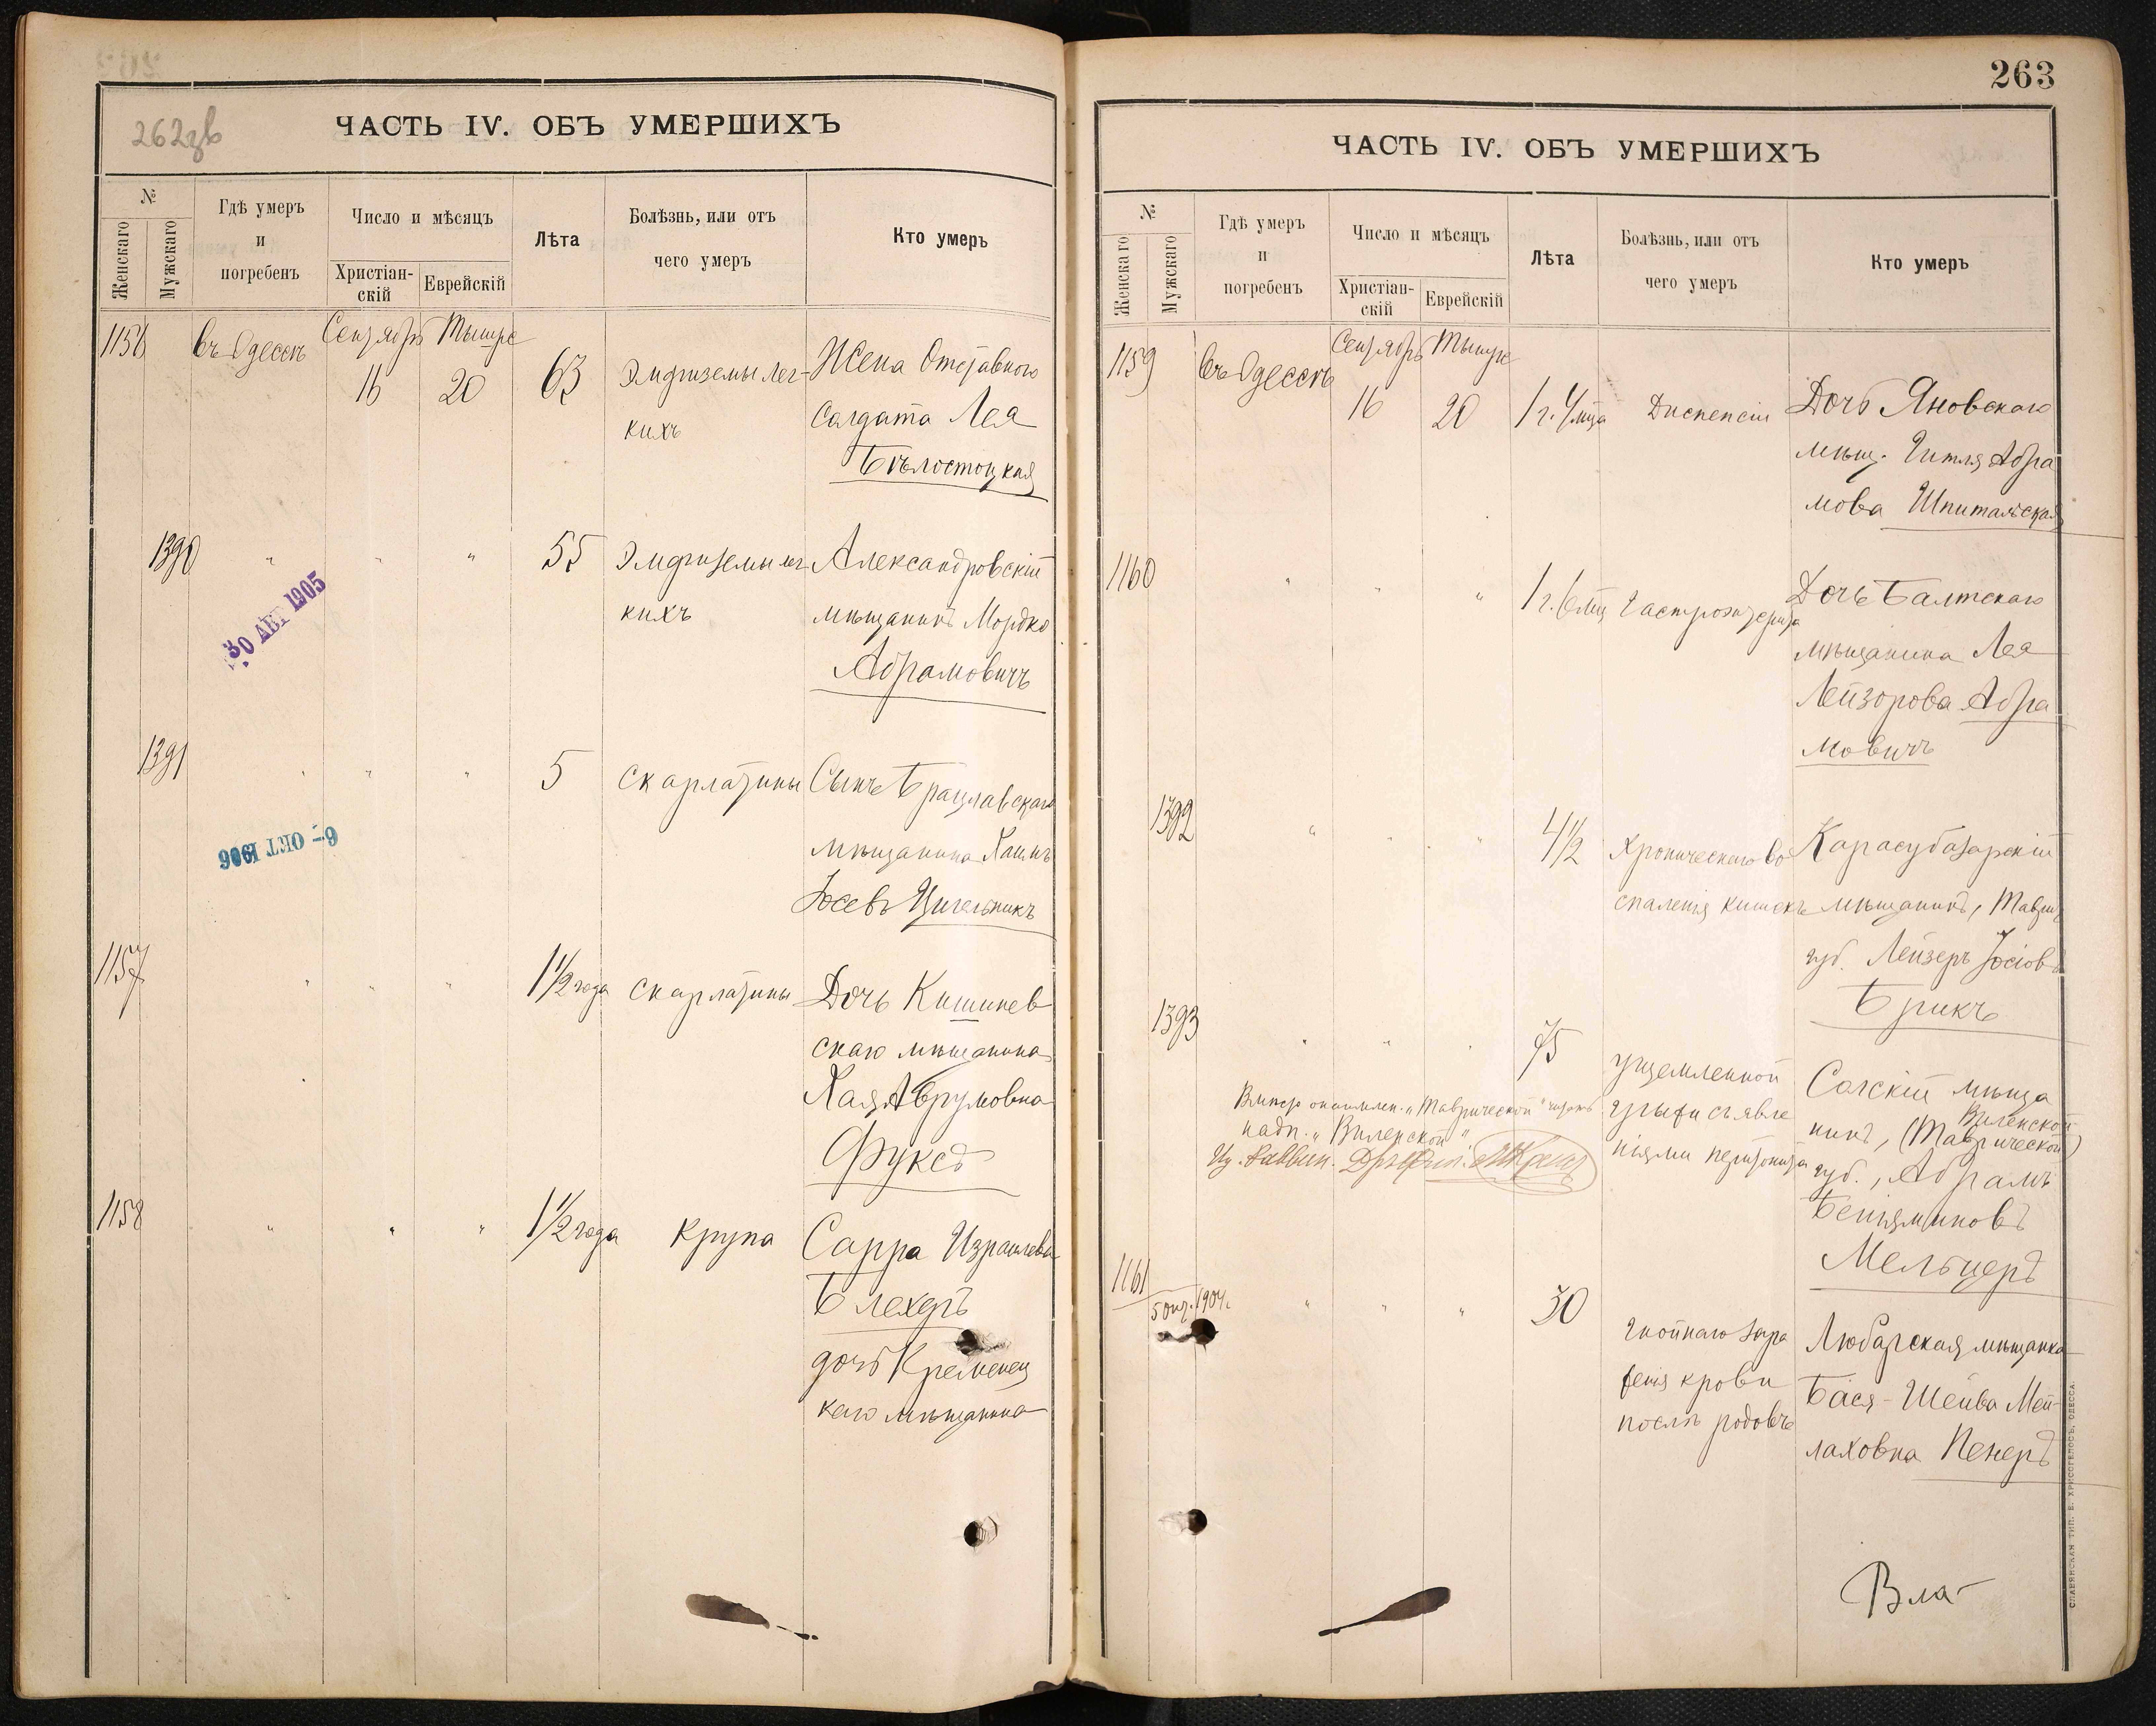 262зв
ЧАСТЬ IV. ОБЪ УМЕРШИХЪ
№
Женскаго
Мужскаго
Гдѣ умеръ
и
погребенъ
Число и мѣсяцъ
Христіан-
скій
Еврейскій
Лѣта
Болѣзнь, или отъ
чего умеръ
Кто умеръ
1156
въ Одессѣ
Сентябрь
16
Тышре
20
63
Эмфиземы лег-
кихъ
Жена Отставного
Солдата Лея
Бѣлостоцкая
1390
"
"
"
55
Эмфиземы лег
кихъ
Александровскій
мѣщанинъ Мордко
Абрамовичъ
30 АВГ 1905
1391
"
"
"
5
Скарлатины
Сынъ Брацлавскаго
мѣщанина Хаимъ
Іосевъ Цигельникъ
6- ОКТ 1906
1157
"
"
"
1 1/2 года
скарлатины
Дочь Кишинев
скаго мѣщанина
Хая Аврумовна
Фуксъ
1158
"
"
"
1 1/2 года
крупа
Сарра Израилева
Блехеръ
дочь Кременец
каго мѣщанина
263
ЧАСТЬ IV. ОБЪ УМЕРШИХЪ
№
Женскаго
Мужскаго
Гдѣ умеръ
и
погребенъ
Число и мѣсяцъ
Христіан-
скій
Еврейскій
Лѣта
Болѣзнь, или отъ
чего умеръ
Кто умеръ
1159
въ Одессѣ
Сентябрь
16
Тышре
20
1 г. 4 мца
Диспепсіи
Дочь Яновскаго
мѣщ. Гитля Абра
мова Шпитальская
1160
"
"
"
1 г. 6 мц
Гастроэнтерита
Дочь Балтскаго
мѣщанина Лея
Лейзорова Абра
мовичъ
1392
"
"
"
4 1/2
Хроническаго во
спаленія кишекъ
Карасубазарскій
мѣщанинъ, Таврич
губ. Лейзеръ Іосіовъ
Брикъ
1393
"
"
"
75
ущемленной
грыжи съ явле
ніями перитонита
Солскій мѣща
Виленской
нинъ, (Таврической)
губ., Абрамъ
Беніяминовъ
Мельцеръ
"Таврической"
надп. "Виленской"
Раввин.
1161
5 окт. 1904.
"
"
"
30
гнойнаго зара
женія крови
послѣ родовъ
Любарская мѣщанка
Бася-Шейва Мей-
лаховна Пекеръ
Вла-
СЛАВЯНСКАЯ ТИП. Е. ХРИСОГЕЛОСЪ, ОДЕССА.